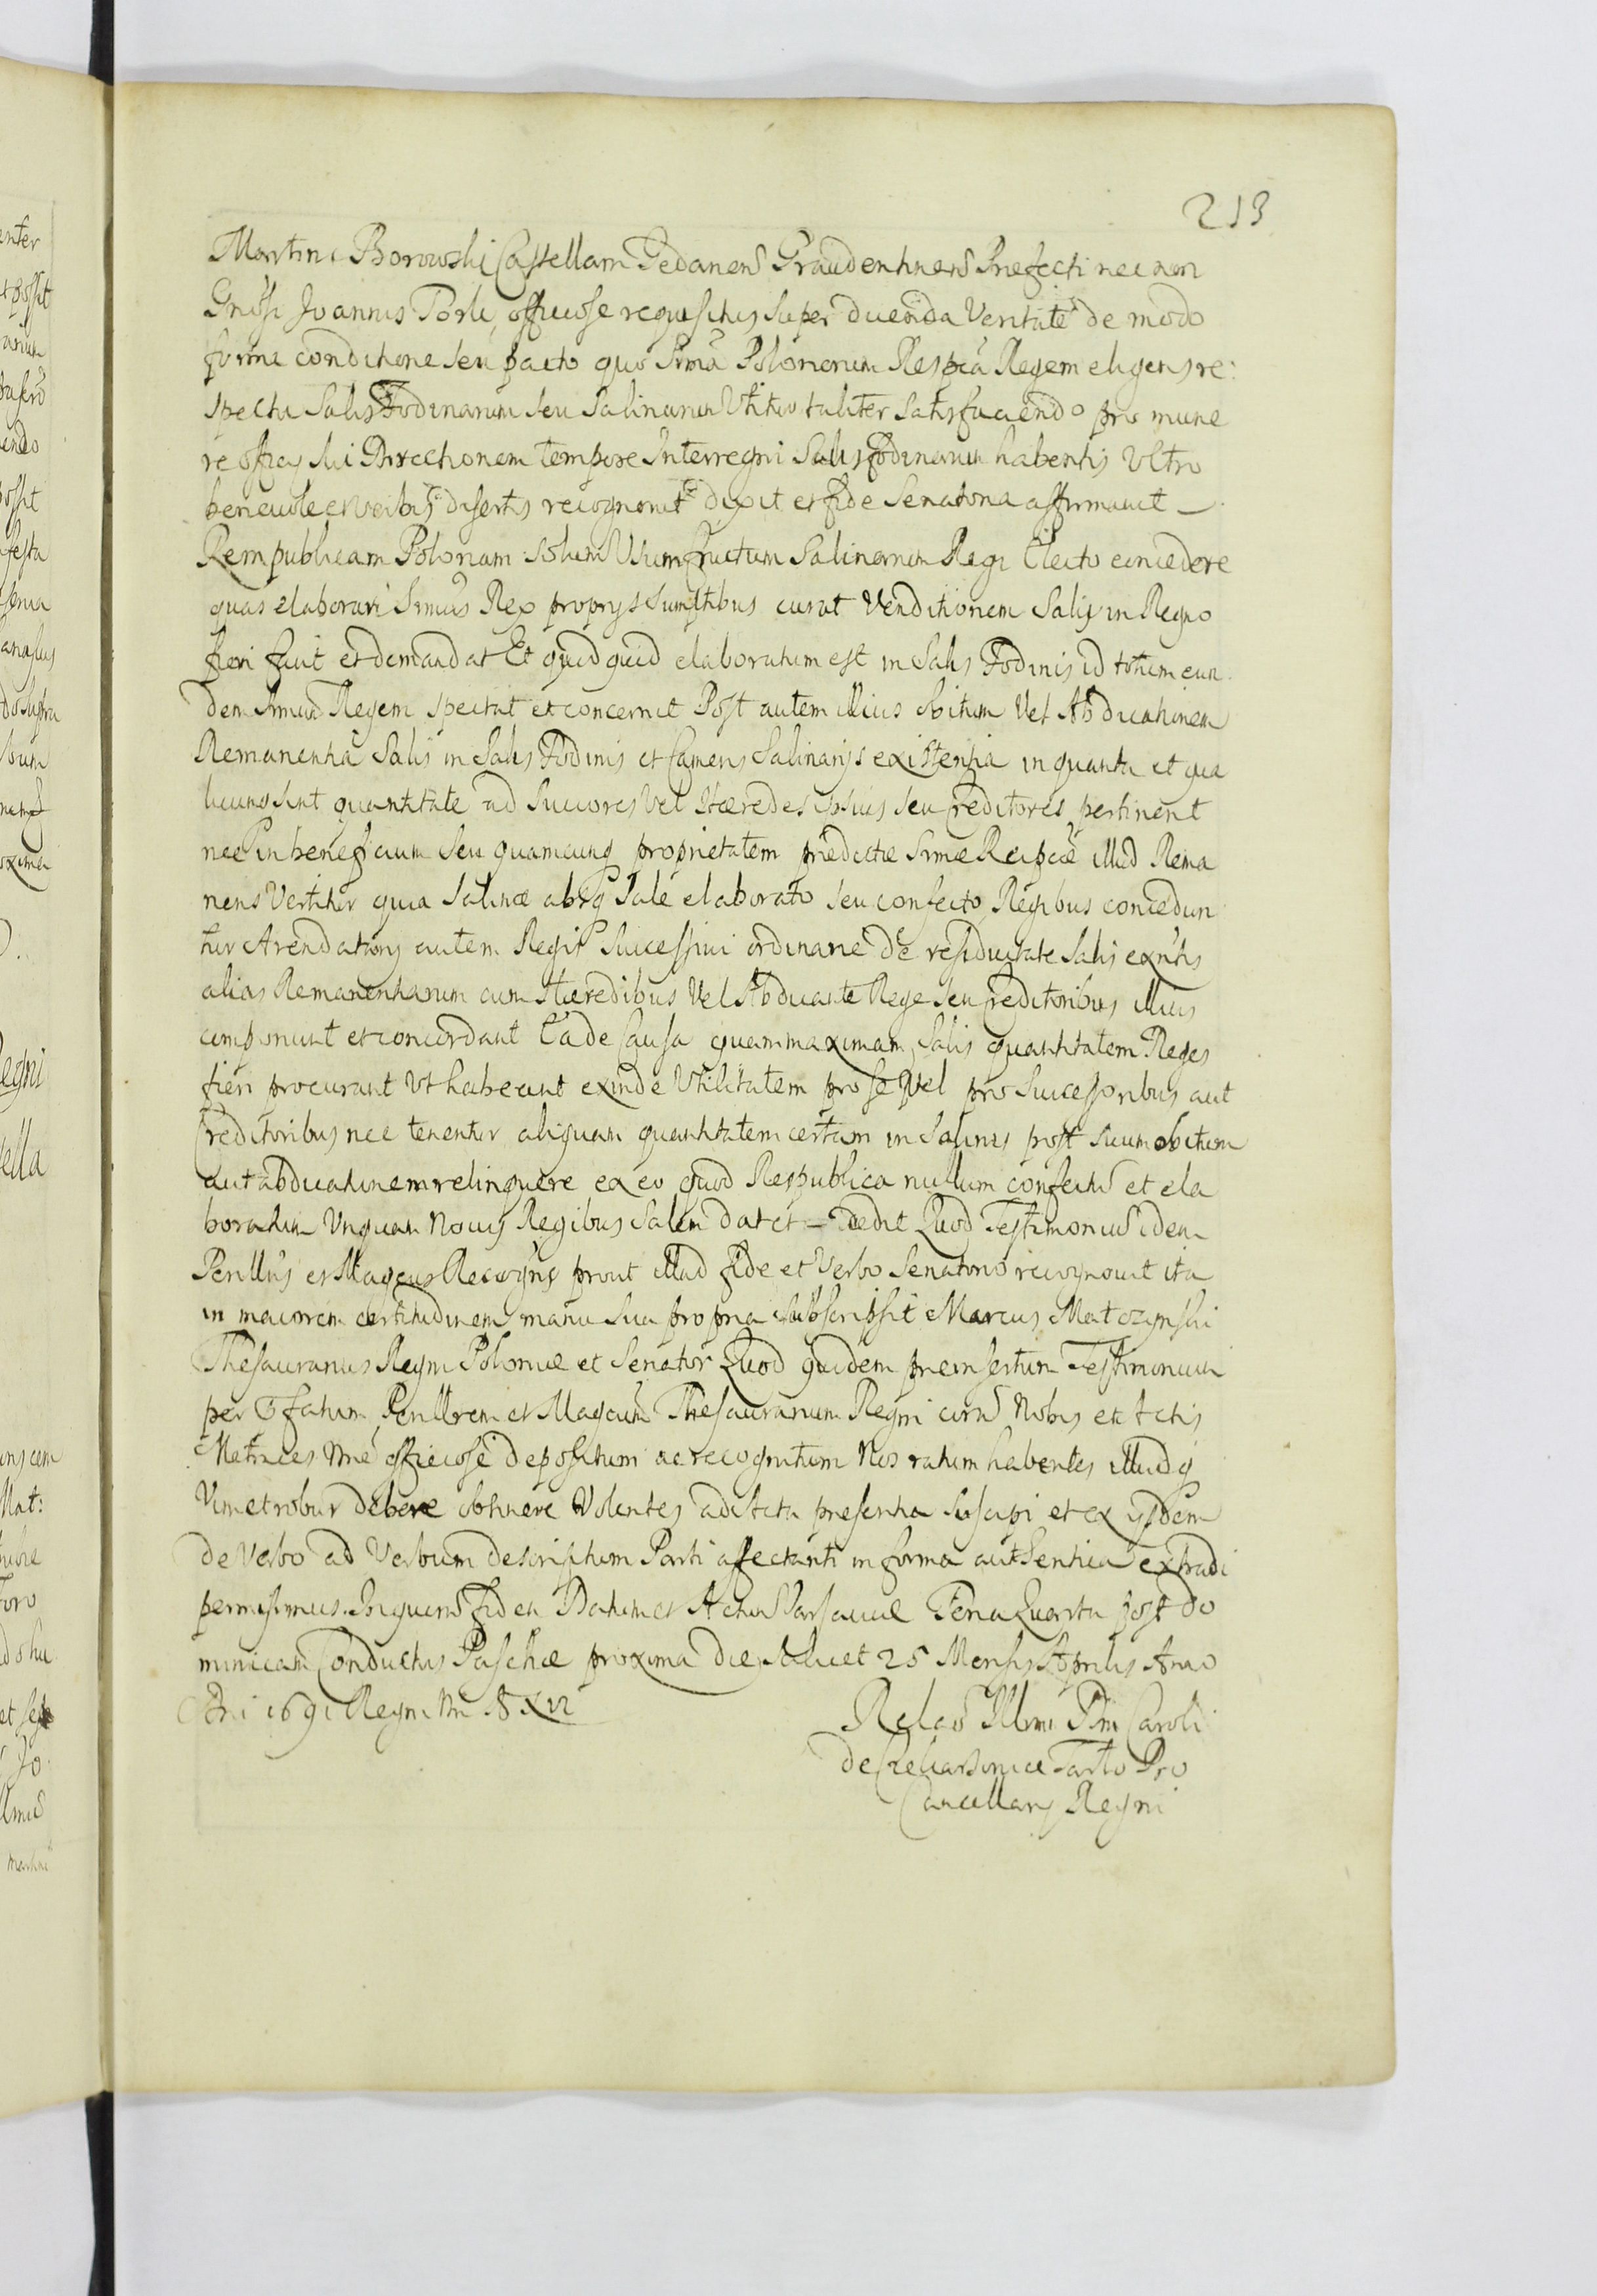 213
Martini Borowski Castellani Gedanens Graudentinens Praefecti nec non
Gnosi Joannis Porli, officiose requisitus super ducenda Veritate de modo
forma conditione seu pacto quo Srma Polonorum Respca Regem eligens re:
spectu Salis Fodinarum seu Salinarum Utitur taliter satisfaciendo pro mune
re officy sui Directionem tempore Interregni Salis fodinarum habentis Ultro
beneuole et verbis disertis recognouit dixit et fide Senatoria affirmauit –
Rempublicam Polonam solum Usumfructum Salinarum Regi Electo concedere
quas elaborari Srmus Rex proprys sumptibus curat Venditionem Salis in Regno
fieri facit et demandat Et quidquid elaboratum est in Salis Fodinis id totum eun
dem Srmum Regem spectat et concernit Post autem illius obitum Vel Abdicationem
Remanentia Salis in Salis Fodinis et Cameris Salinarijs existentia in quanta et qua
licunq sint quantitate ad Succores Vel Haeredes ipsius seu Creditores pertinent
nec in beneficium seu quamcunq proprietatem praedictae Srmae Reipcae illud Rema
nens Vertitur quia Salinae absq Sale elaborato seu confecto Regibus concedun
tur Arendatorij autem Regis Successiui ordinarie de residuitate Salis exntis
alias Remanentiarum cum Haeredibus Vel Abdicante Rege seu Creditoribus illius
componunt et concordant Ea de Causa quam maximam Salis quantitatem Reges
fieri procurant Ut habeant exinde Utilitatem pro se Vel pro Successoribus aut
Creditoribus nec tenentur aliquam quantitatem certam in Salinis post suum obitum
aut abdicationem relinquere ex eo quod Respublica nullum confectu et ela
boratum Unquam Nouis Regibus Salem dat et – dedit Quod Testimoniu idem
Perillus et Magcus Recogns prout illud fide et Verbo Senatorio recognouit ita
in maiorem certitudinem manu sua propria subscripsit Marcus Matczynski
Thesaurarius Regni Poloniae et Senator Quod quidem praeinsertum Testimonium
per fatum Perillrem et Magcum Thesaurarium Regni coram Nobis et Actis
Metrices Nrae officiose depositum ac recognitum Nos ratum habentes illudq
Vim et robur debere obtinere Volentes ad Acta praesentia suscipi et ex ijsdem
de Verbo ad Verbum descriptum Parti affectanti in forma authentica extradi
permisimus. In quorum fidem Datum et Actum Varsauiae Feria Quarta post Do
minicam Conductus Paschae proxima die scilicet 25 Mensis Aprilis Anno
Dni 1691 Regni Nri XVII
Relao Illmi Dni Caroli
de Tarlo Pro
Cancellarij Regni